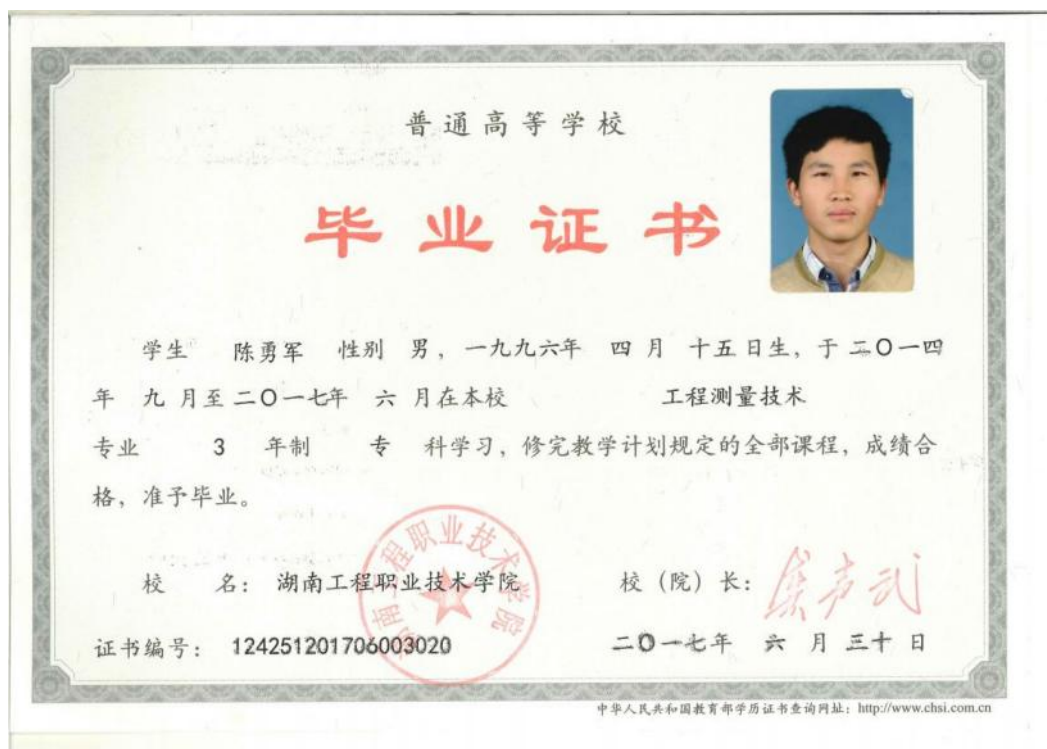 普通高等学校
毕业证书
学生 陈勇军 性别 男，一九九六年 四 月 十五日生，于二〇一四
年 九 月至二〇一七年 六 月在本校 工程测量技术
专业 3 年制 专 科学习，修完教学计划规定的全部课程，成绩合
格，准予毕业。
校 名：湖南工程职业技术学院 校（院）长：
湖南工程职业技术学院
证书编号：124251201706003020 二〇一七年 六 月 三十 日
中华人民共和国教育部学历证书查询网址：http://www.chsi.com.cn